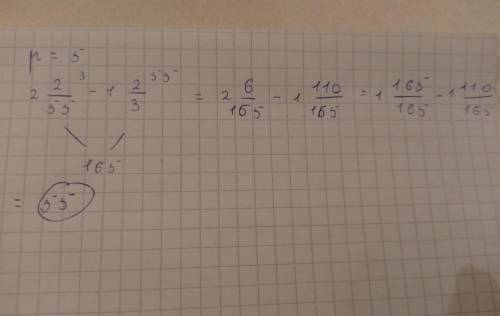 p = 5
2 2/55 ³ - 1 2/3 ⁵⁵ = 2 6/165 - 1 110/165 = 1 165/165 - 1 110/165
165
= 55